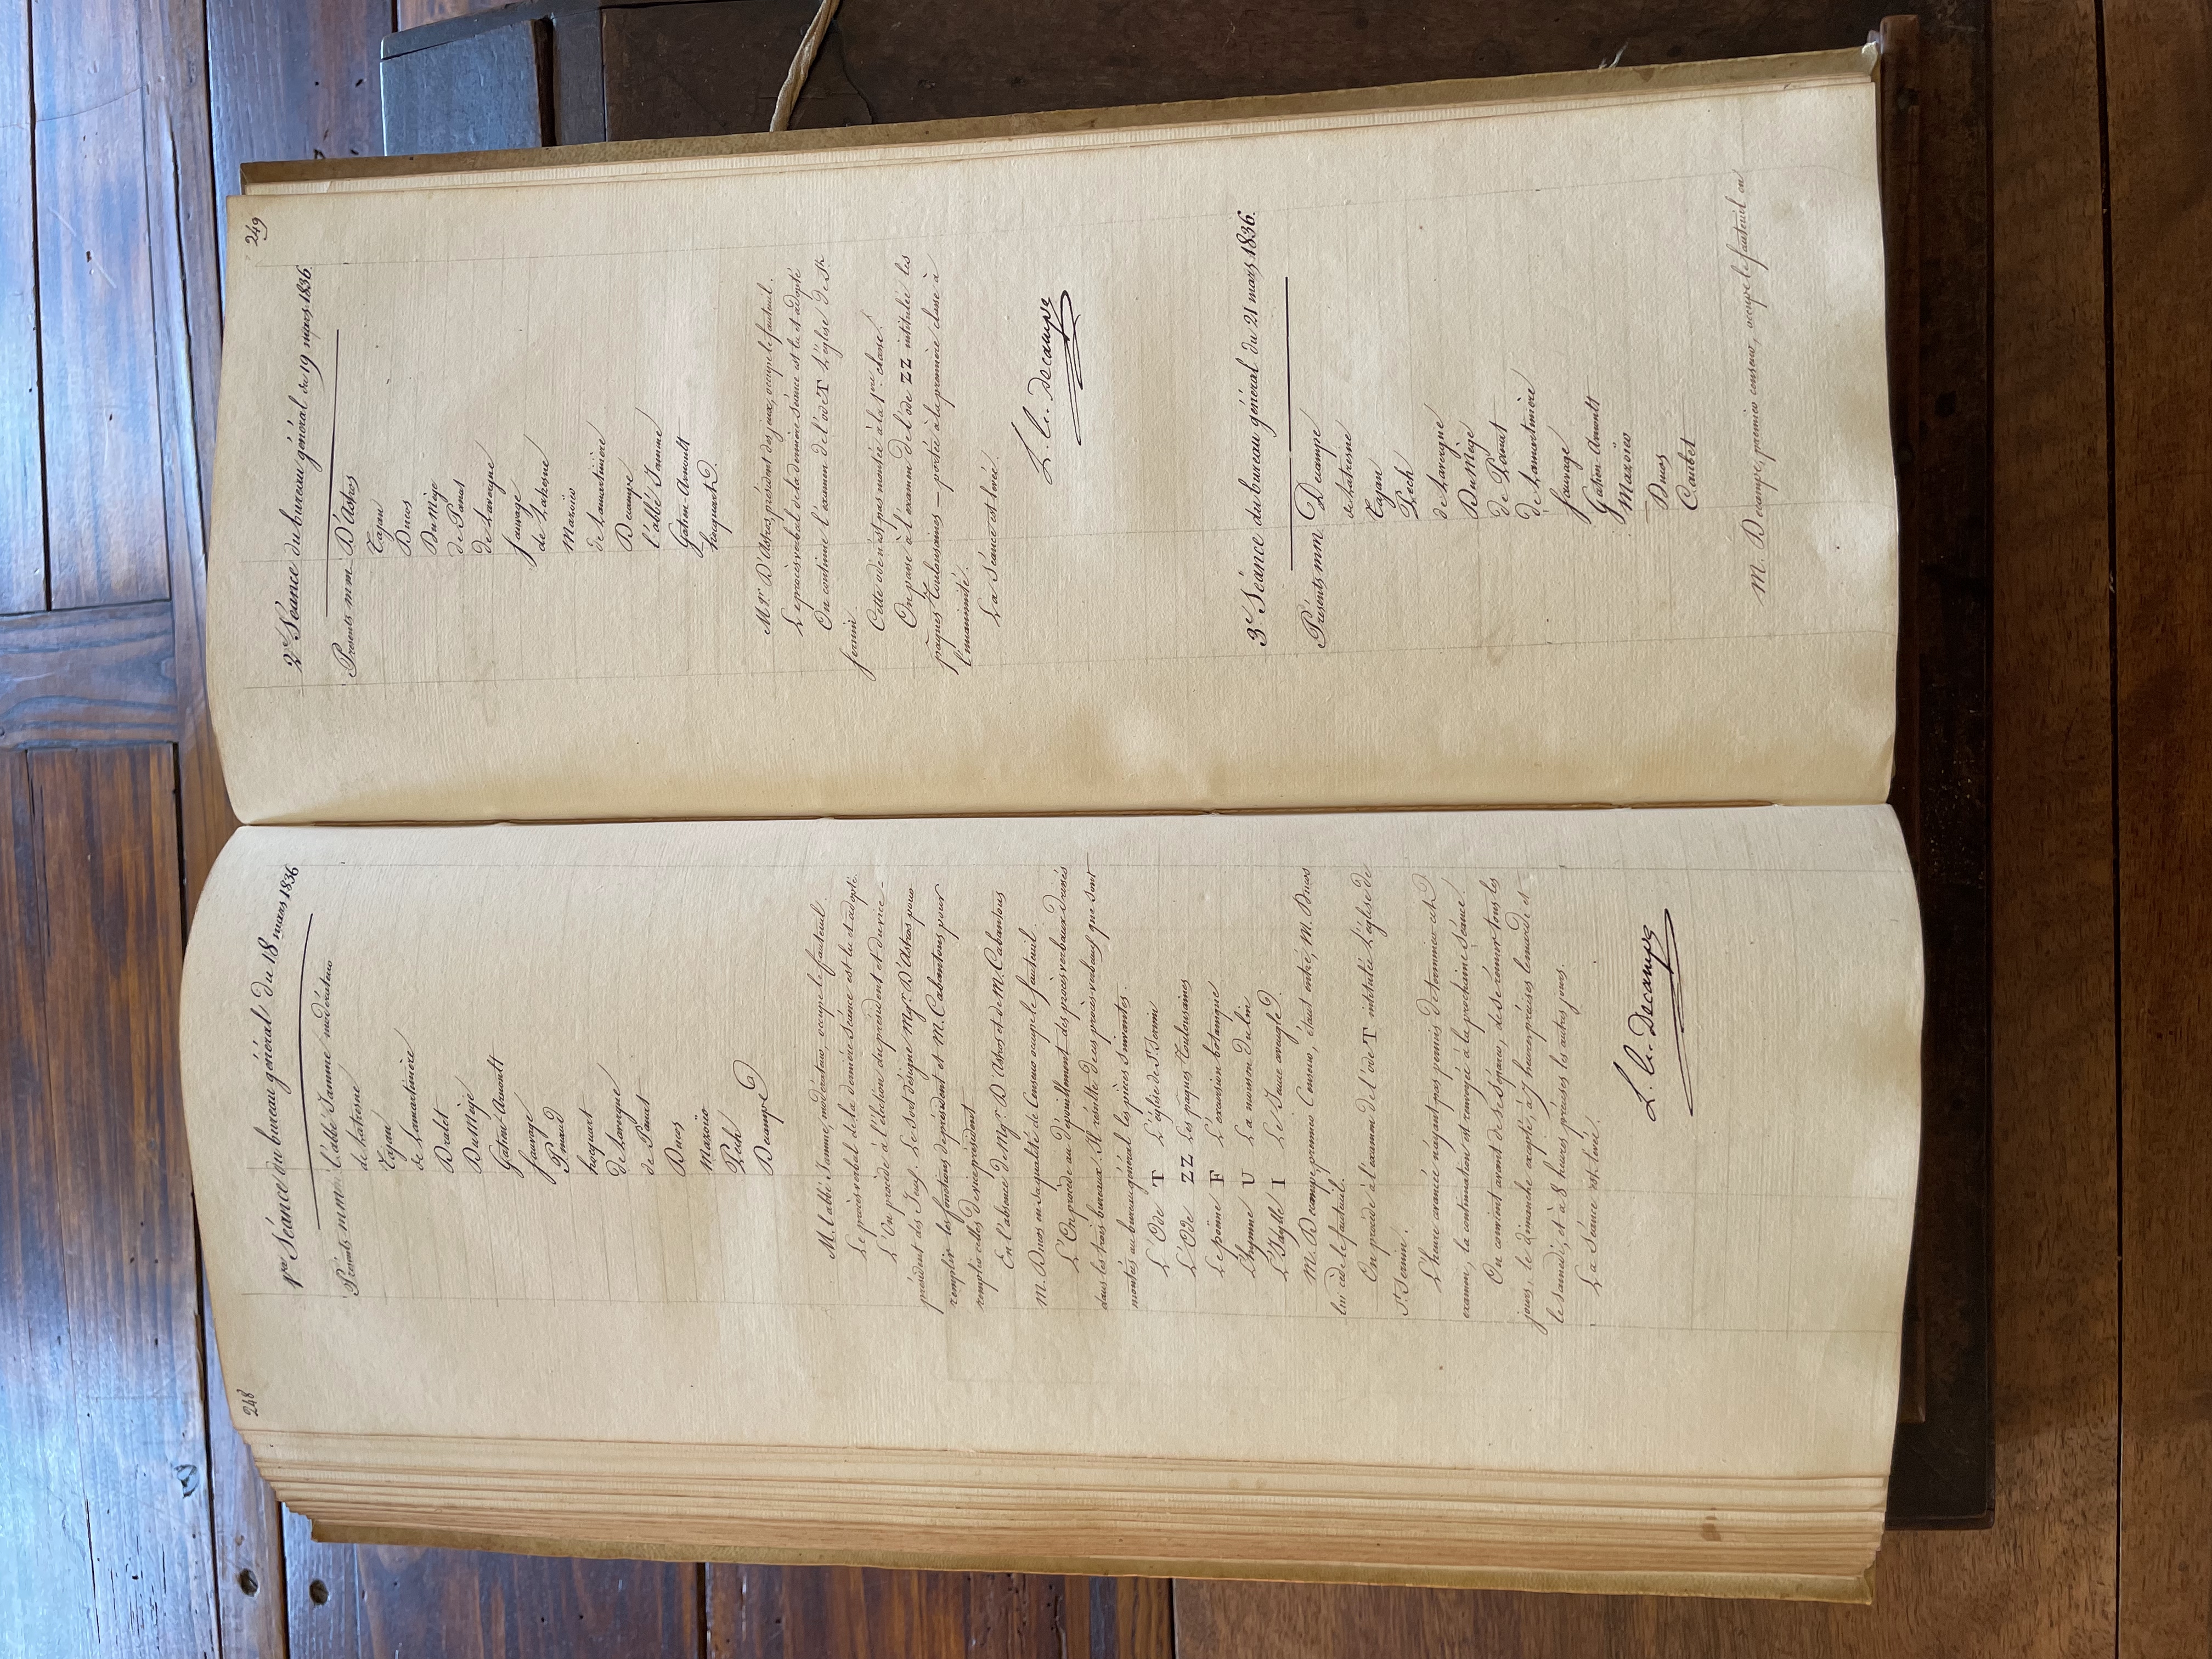 248
1re Séance du bureau général du 18 mars 1836
Présents mm. l'abbé Jamme modérateur
de Latresne
Tajan
de Lamartinière
Dralet
Du Mège
Gatien-Arnoult
Sauvage
Pinaud
hocquart
de Lavergne
de Panat
Ducos
Mazoïer
Pech
Decampe
M. l'abbé Jamme, modérateur, occupe le fauteuil.
Le procès-verbal de la dernière séance est lu et adopté.
L'On procède à l'élection du président et du vice-
président des Jeux. Le Sort désigne Mgr. D'Astros pour
remplir les fonctions de président et M. Cabantous pour
remplir celles de vice président.
En l'absence de Mgr. D'Astros et de M. Cabantous
M. Ducos en sa qualité de Censeur occupe le fauteuil.
L'On procède au dépouillement des procès verbaux dressés
dans les trois bureaux. Il résulte de ces procès-verbaux que sont
montés au bureau général les pièces suivantes.
L'Ode T L'église de St. Sernin
L'Ode ZZ Les pâques Toulousaines
Le poëme F L'excursion botanique
L'hymne U La maison du lin
L'Idylle I Le Jeune aveugle.
M. Decampe, premier Censeur, étant entré, M. Ducos
lui cède le fauteuil.
On procède à l'examen de l'ode T intitulée L'église de
St. Sernin.
L'heure avancée n'ayant pas permis de terminer cet
examen, la continuation est renvoyée à la prochaine Séance.
On convient avant de se séparer, de se réunir tous les
jours, le dimanche excepté, à 7 heures précises le mardi et
le Samedi, et à 8 heures précises les autres jours.
La Séance est levée.
L. A. Decampe
249
2e Séance du bureau général du 19 mars 1836.
Présents mm. D'Astros
Tajan
Ducos
Du Mège
de Panat
de Lavergne
Sauvage
de Latresne
Mazoïer
de Lamartinière
Decampe
l'abbé Jamme
Gatien-Arnoult
hocquart
Mgr. D'Astros, président des jeux, occupe le fauteuil.
Le procès verbal de la dernière séance est lu et adopté
On continue l'examen de l'ode T L'église de St.
Sernin.
Cette ode n'est pas montée à la 1ere classe.
On passe à l'examen de l'ode ZZ intitulée les
pâques Toulousaines – portée à la première classe à
l'unanimité.
La Séance est levée.
L. A. Decampe
3e Séance du bureau général du 21 mars 1836.
Présents mm. Decampe
de Latresne
Tajan
Pech
de Lavergne
Du Mège
de Panat
de Lamartinière
Sauvage
Gatien-Arnoult
Mazoïer
Ducos
Caubet
M. Decampe, premier censeur, occupe le fauteuil en